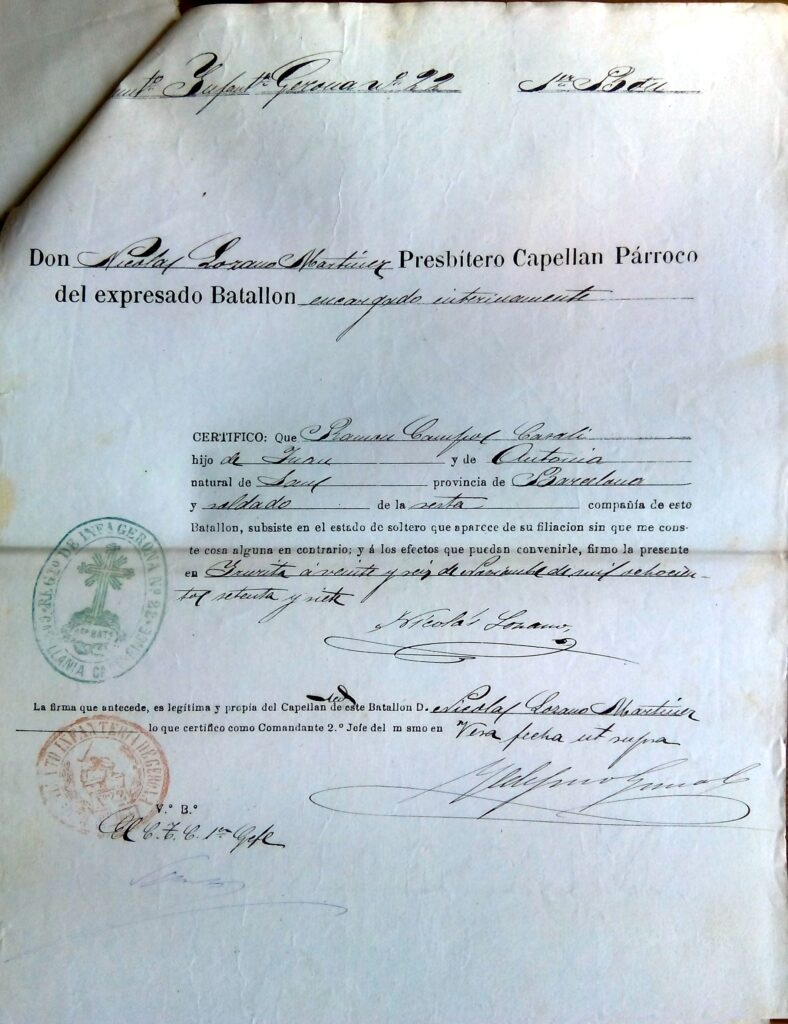 Infantª Gerona nº 22 1er Bon
Don Nicolas Lozano Martinez Presbítero Capellan Párroco
del expresado Batallon encargado interinamente
CERTIFICO: Que Ramon Campos Casali
hijo de Juan y de Antonia
natural de Sans provincia de Barcelona
y soldado de la sesta compañía de este
Batallon, subsiste en el estado de soltero que aparece de su filiacion sin que me cons-
te cosa alguna en contrario; y á los efectos que puedan convenirle, firmo la presente
en á veinte y seis de de mil ochocien-
tos setenta y siete
Nicolás Lozano
REGTº DE INFª GERONA Nº 22
1er BATN
La firma que antecede, es legítima y propia del Capellan de este Batallon D. Nicolas Lozano Martinez
lo que certifico como Comandante 2.º Jefe del mismo en Vera fecha ut supra
INFANTERIA DE GERONA
V.º B.º
El C. T. C. 1er Gefe